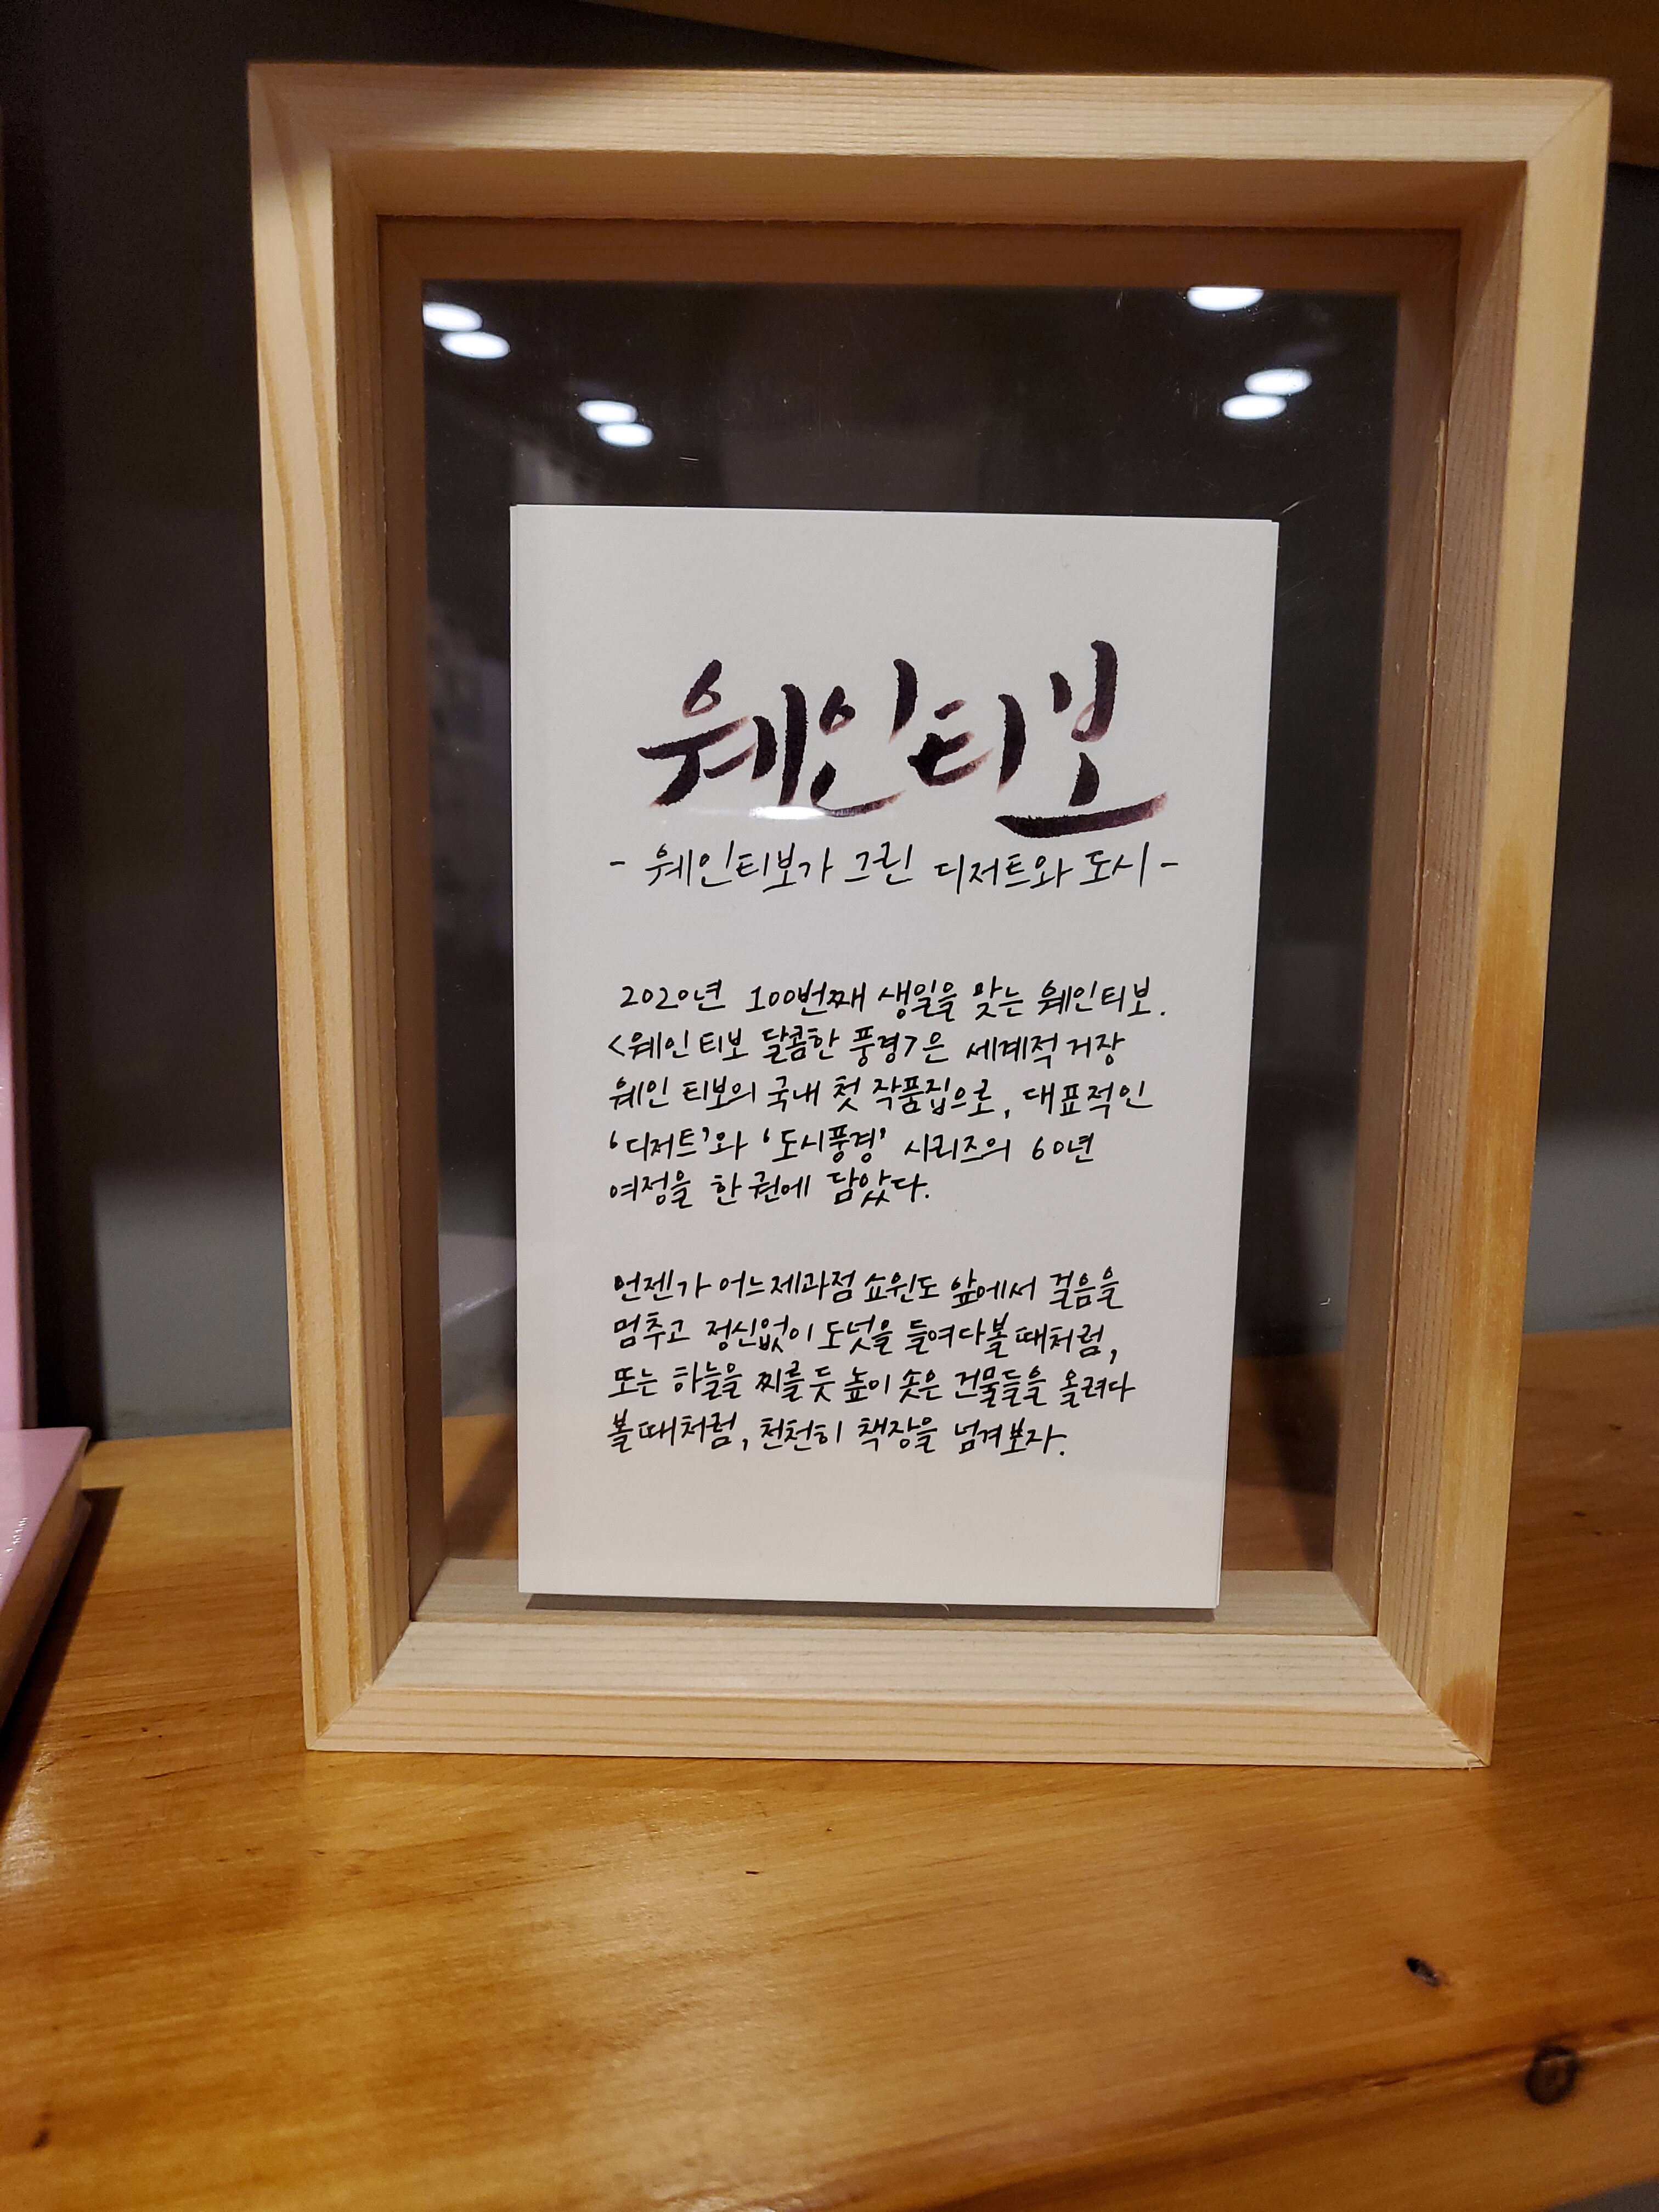 웨인티보
- 웨인티보가 그린 디저트와 도시 -
2020년 100번째 생일을 맞는 웨인티보.
<웨인 티보 달콤한 풍경>은 세계적 거장
웨인 티보의 국내 첫 작품집으로, 대표적인
'디저트'와 '도시풍경' 시리즈의 60년
여정을 한 권에 담았다.
언젠가 어느 제과점 쇼윈도 앞에서 걸음을
멈추고 정신없이 도넛을 들여다볼 때처럼,
또는 하늘을 찌를 듯 높이 솟은 건물들을 올려다
볼 때처럼, 천천히 책장을 넘겨보자.